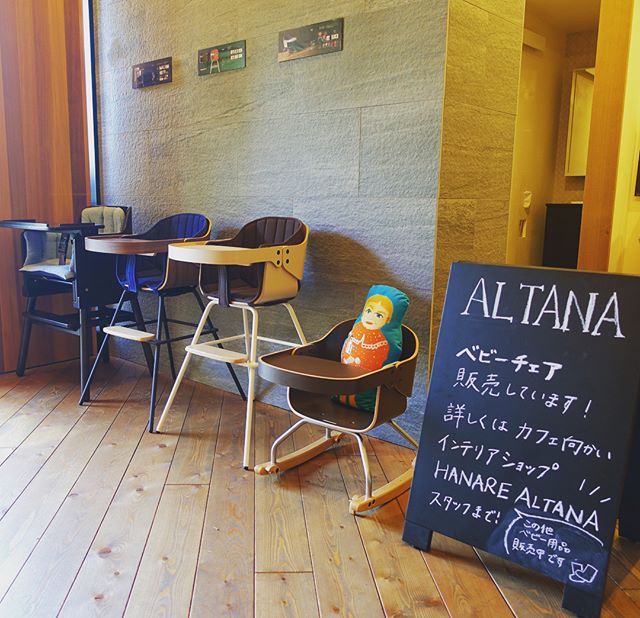 ALTANA
ベビーチェア
販売しています!
詳しくは カフェ向かい
インテリアショップ
HANARE ALTANA
スタッフまで!
この他
ベビー用品
販売中です